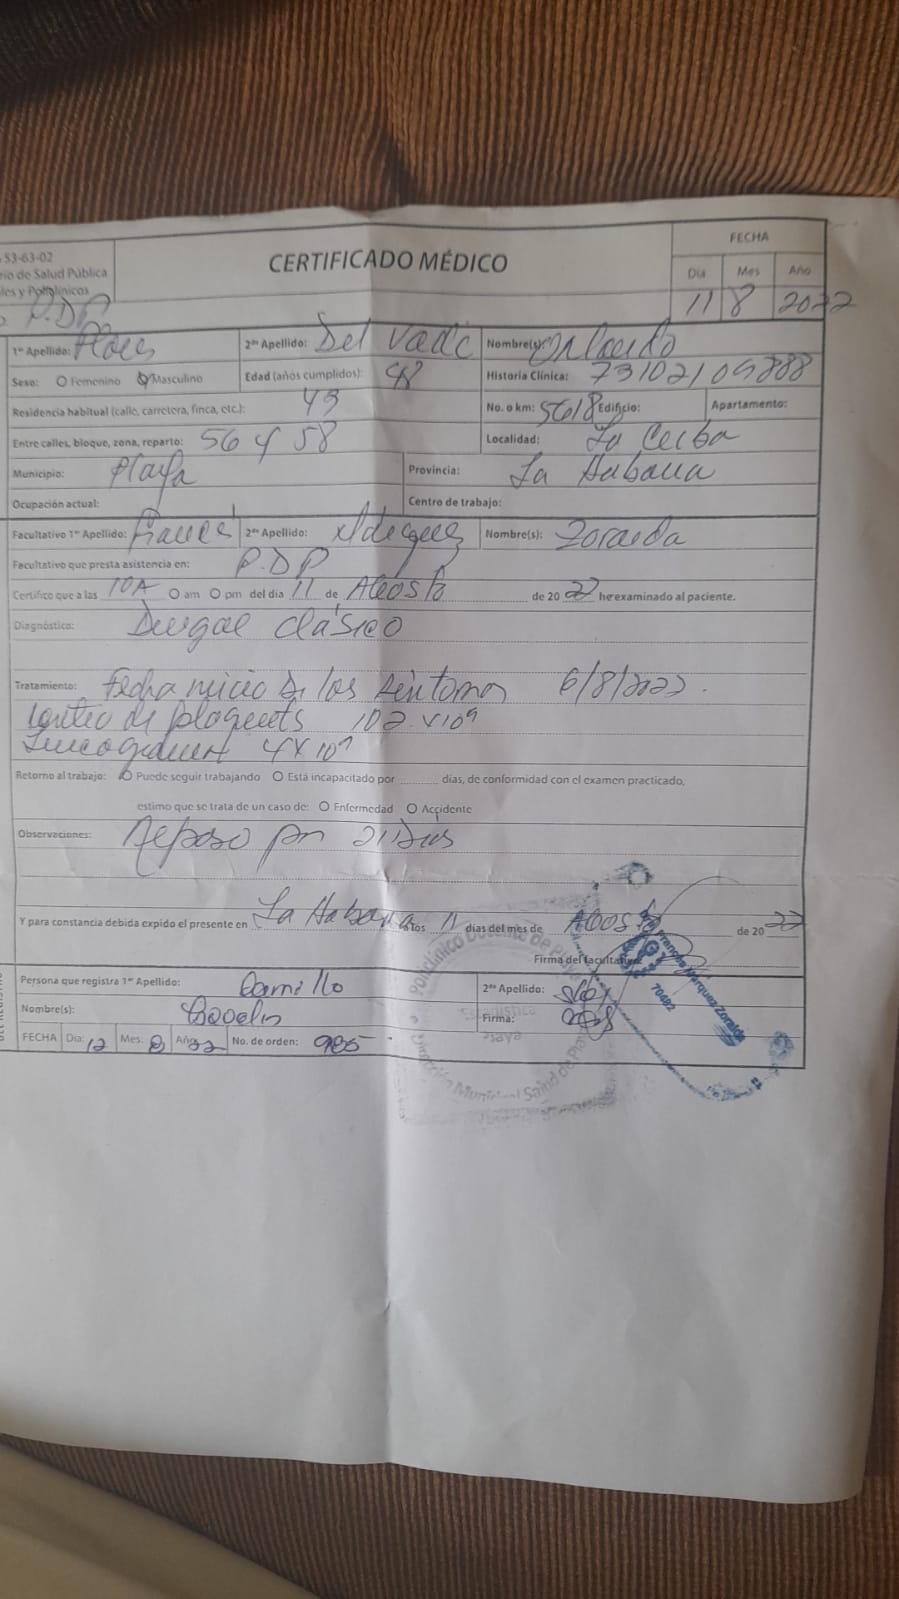 53-63-02
CERTIFICADO MÉDICO
FECHA
de Salud Pública
y Policlínicos
Día Mes Año
P.DP
11 8 2022
1er Apellido: 2do Apellido: Del Nombre(s): Orlando
Sexo: Femenino Masculino Edad (años cumplidos): 48 Historia Clínica: 73102109888
Residencia habitual (calle, carretera, finca, etc.): 49 No. o km: 5618 Edificio: Apartamento:
Entre calles, bloque, zona, reparto: 56 y 58 Localidad: La Ceiba
Municipio: Playa Provincia: La Habana
Ocupación actual: Centro de trabajo:
Facultativo 1er Apellido: 2do Apellido: Nombre(s): Zoraida
Facultativo que presta asistencia en: P.DP
Certifico que a las 10A am pm del día 11 de Agosto de 2022 he examinado al paciente.
Diagnóstico: clásico
Tratamiento: Fecha inicio de los síntomas 6/8/2022.
Conteo de 102 x10⁹
4x10⁹
Retorno al trabajo: Puede seguir trabajando Está incapacitado por días, de conformidad con el examen practicado,
estimo que se trata de un caso de: Enfermedad Accidente
Observaciones: Reposo por
Y para constancia debida expido el presente en La Habana a los 11 días del mes de Agosto de 2022
Firma del facultativo
Policlínico Docente de Playa
Estadística
Playa
Dirección Municipal Salud de Playa
Márquez Zoraida
70482
Persona que registra 1er Apellido: 2do Apellido:
Nombre(s): Firma:
FECHA Día: 12 Mes: 8 Año: 22 No. de orden: 985